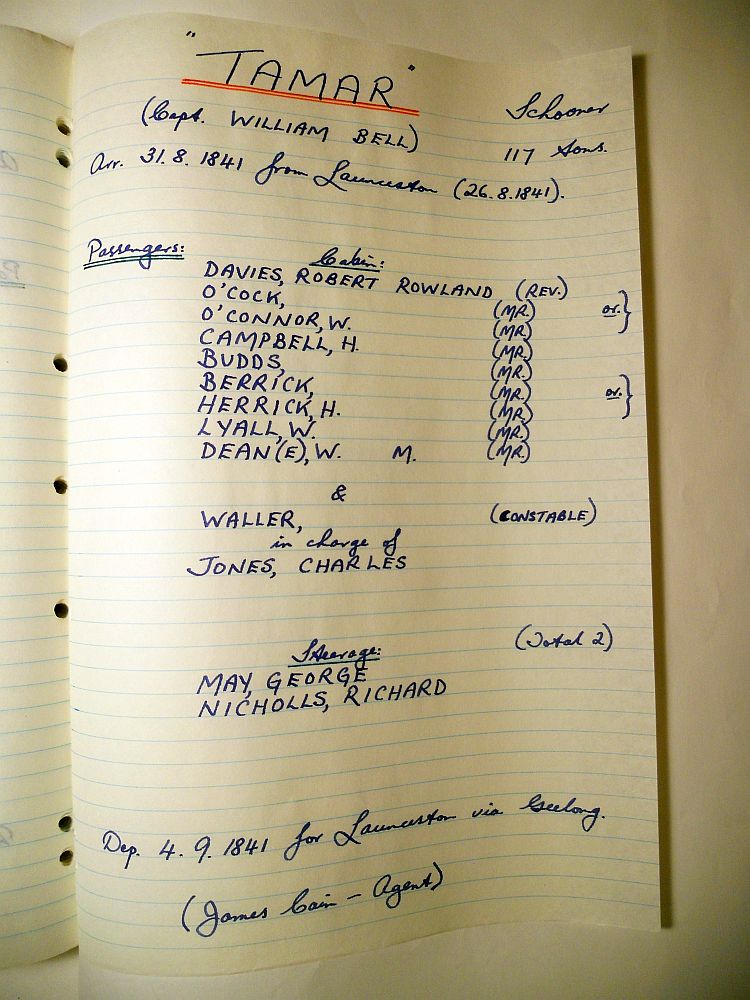 "TAMAR"
Schooner
(Capt. WILLIAM BELL)
117 tons.
Arr. 31.8.1841 from Launceston (26.8.1841).
Passengers:
Cabin:
DAVIES, ROBERT ROWLAND (REV.)
O'COCK, (MR.) or. }
O'CONNOR, W. (MR.)
CAMPBELL, H. (MR.)
BUDDS, (MR.)
BERRICK, (MR.) or. }
HERRICK, H. (MR.)
LYALL, W. (MR.)
DEAN(E), W. M. (MR.)
&
WALLER, (CONSTABLE)
in charge of
JONES, CHARLES
Steerage: (Total 2)
MAY, GEORGE
NICHOLLS, RICHARD
Dep. 4.9.1841 for Launceston via Geelong.
(James Cain - Agent)